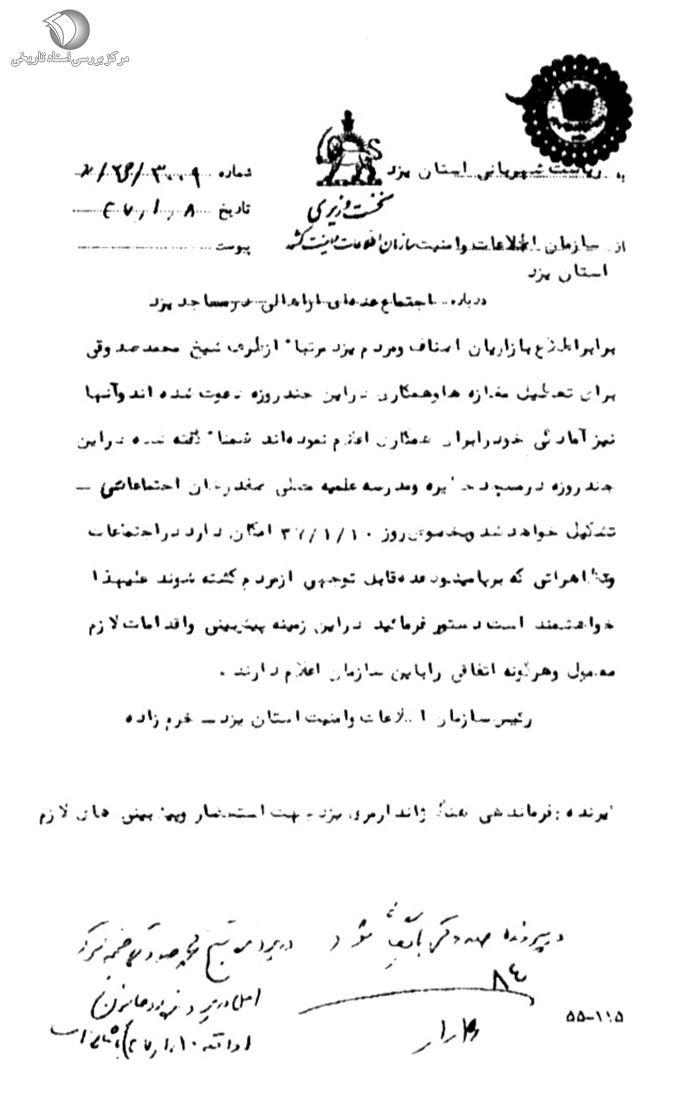 مرکز بررسی اسناد تاریخی
به ریاست شهربانی استان یزد
شماره
تاریخ
پیوست
نخست وزیری
سازمان اطلاعات و امنیت کشور
از سازمان اطلاعات و امنیت
استان یزد
درباره اجتماع عده‌ای از اهالی در مساجد یزد
برابر اطلاع بازاریان اصناف و مردم یزد مرتباً از طرف شیخ محمد صدوقی
برای تعطیل مغازه ها و همکاری در این چند روزه دعوت شده اند و آنها
نیز آمادگی خود را برای همکاری اعلام نموده‌اند ضمناً گفته شده در این
چند روزه در مسجد حظیره و مدرسه علمیه مصلی صفدرخان اجتماعاتی –
تشکیل خواهد شد و بخصوص روز ۳۷/۱/۱۰ امکان دارد در اجتماعات
و تظاهراتی که برپا میشود عده قابل توجهی از مردم کشته شوند علیهذا
خواهشمند است دستور فرمائید در این زمینه پیش‌بینی و اقدامات لازم
معمول و هرگونه اتفاقی را باین سازمان اعلام دارند .
رئیس سازمان اطلاعات و امنیت استان یزد – خرم زاده
گیرنده : فرماندهی هنگ ژاندارمری یزد جهت استحضار و پیش‌بینی های لازم
در پرونده صدوقی بایگانی شود
۸۴
۵۵-۱۱۵